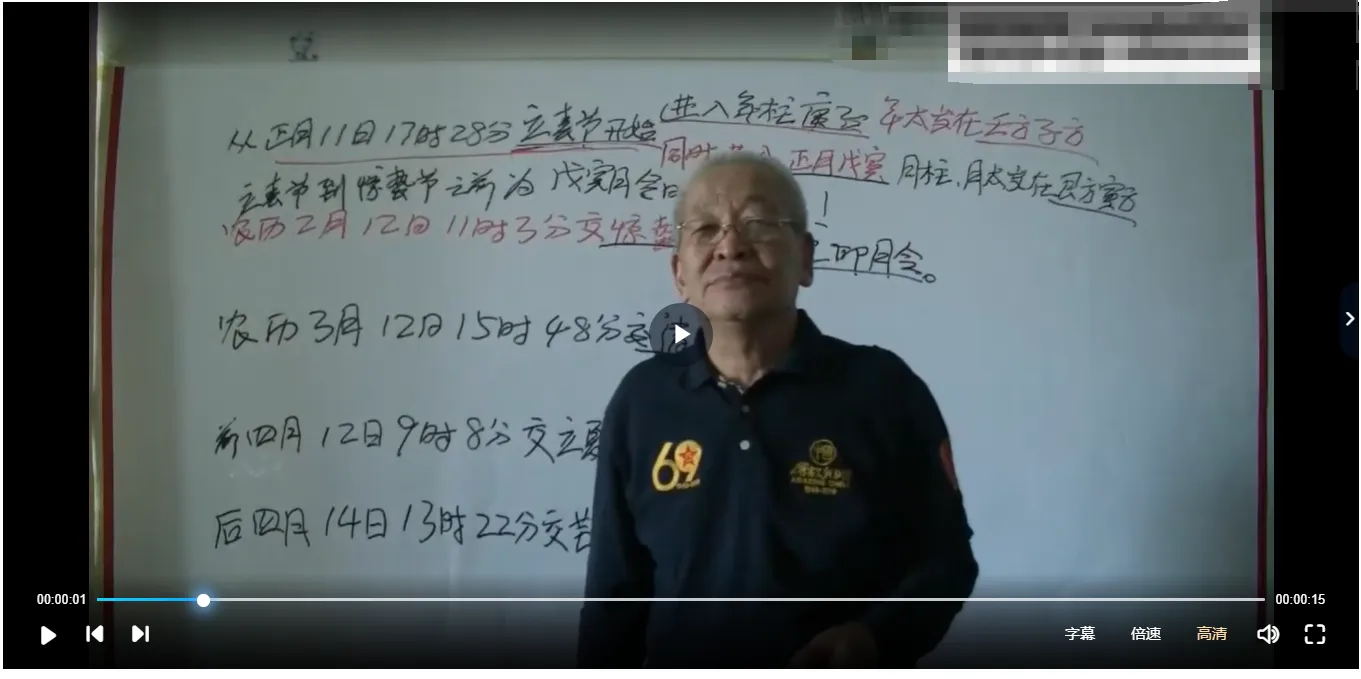 从正月11日17时28分立春节开始 进入年柱庚子 年太岁在壬方子方
同时 正月戊寅 月柱,月太岁在艮方寅方
立春节到惊蛰节之前为戊寅月令
农历2月12日11时3分交惊蛰
卯月令。
农历3月12日15时48分交清
前四月12日9时8分交立夏
后四月14日13时22分交芒
69
00:00:01
00:00:15
字幕 倍速 高清